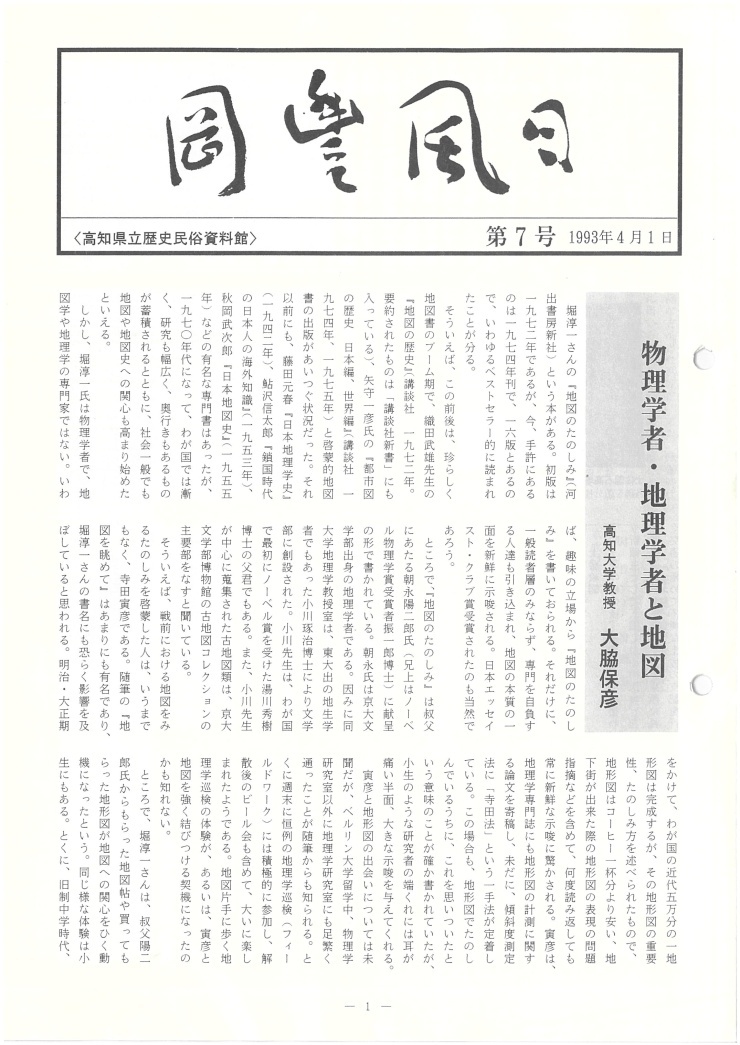 岡豊風日
〈高知県立歴史民俗資料館〉
第7号 1993年4月1日
物理学者・地理学者と地図
高知大学教授 大脇保彦
堀淳一さんの『地図のたのしみ』(河
出書房新社)という本がある。初版は
一九七二年であるが、今、手許にある
のは一九七四年刊で、一六版とあるの
で、いわゆるベストセラー的に読まれ
たことが分る。
そういえば、この前後は、珍らしく
地図書のブーム期で、織田武雄先生の
『地図の歴史』(講談社 一九七二年。
要約されたものは「講談社新書」にも
入っている)、矢守一彦氏の『都市図
の歴史 日本編、世界編』(講談社 一
九七四年、一九七五年)と啓蒙的地図
書の出版があいつぐ状況だった。それ
以前にも、藤田元春『日本地理学史』
(一九四二年)、鮎沢信太郎『鎖国時代
の日本人の海外知識』(一九五三年)、
秋岡武次郎『日本地図史』(一九五五
年)などの有名な専門書はあったが、
一九七〇年代になって、わが国では漸
く、研究も幅広く、奥行きもあるもの
が蓄積されるとともに、社会一般でも
地図や地図史への関心も高まり始めた
といえる。
しかし、堀淳一氏は物理学者で、地
図学や地理学の専門家ではない。いわ
ば、趣味の立場から『地図のたのし
み』を書いておられる。それだけに、
一般読者層のみならず、専門を自負す
る人達も引き込まれ、地図の本質の一
面を新鮮に示唆される。日本エッセイ
スト・クラブ賞受賞されたのも当然で
あろう。
ところで、『地図のたのしみ』は叔父
にあたる朝永陽二郎氏(兄上はノーベ
ル物理学賞受賞者振一郎博士)に献呈
の形で書かれている。朝永氏は京大文
学部出身の地理学者である。因みに同
大学地理学教授室は、東大出の地生学
者でもあった小川琢治博士により文学
部に創設された。小川先生は、わが国
で最初にノーベル賞を受けた湯川秀樹
博士の父君でもある。また、小川先生
が中心に蒐集された古地図類は、京大
文学部博物館の古地図コレクションの
主要部をなすと聞いている。
そういえば、戦前における地図をみ
るたのしみを啓蒙した人は、いうまで
もなく、寺田寅彦である。随筆の『地
図を眺めて』はあまりにも有名であり、
堀淳一さんの書名にも恐らく影響を及
ぼしていると思われる。明治・大正期
をかけて、わが国の近代五万分の一地
形図は完成するが、その地形図の重要
性、たのしみ方を述べられたもので、
地形図はコーヒー一杯分より安い、地
下街が出来た際の地形図の表現の問題
指摘などを含めて、何度読み返しても
常に新鮮な示唆に驚かされる。寅彦は、
地理学専門誌にも地形図の計測に関す
る論文を寄稿し、未だに、傾斜度測定
法に「寺田法」という一手法が定着し
ている。この場合も、地形図でたのし
んでいるうちに、これを思いついたと
いう意味のことが確か書かれていたが、
小生のような研究者の端くれには耳が
痛い半面、大きな示唆を与えてくれる。
寅彦と地形図の出会いについては未
聞だが、ベルリン大学留学中、物理学
研究室以外に地理学研究室にも足繁く
通ったことが随筆からも知られる。と
くに週末に恒例の地理学巡検(フィー
ルドワーク)には積極的に参加し、解
散後のビール会も含めて、大いに楽し
まれたようである。地図片手に歩く地
理学巡検の体験が、あるいは、寅彦と
地図を強く結びつける契機になったの
かも知れない。
ところで、堀淳一さんは、叔父陽二
郎氏からもらった地図帖や買っても
らった地形図が地図への関心をひく動
機になったという。同じ様な体験は小
生にもある。とくに、旧制中学時代、
― 1 ―